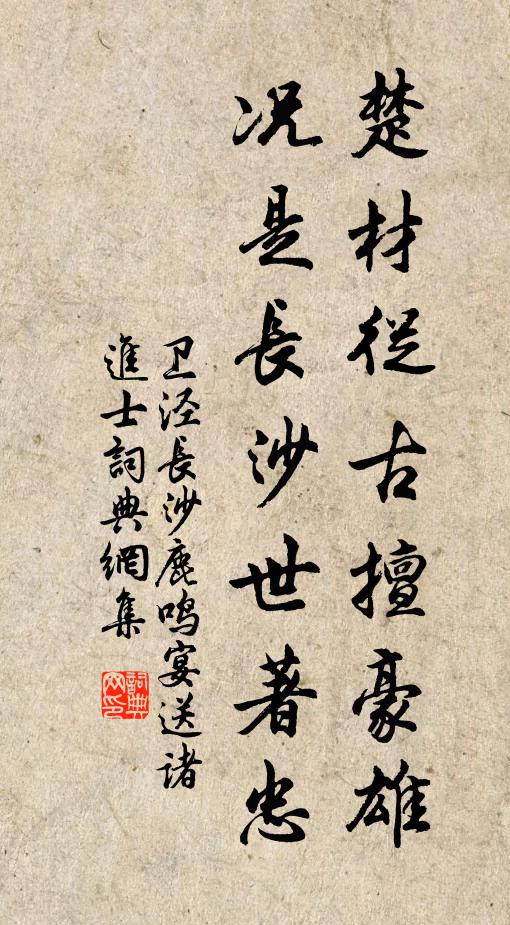 楚材從古擅豪雄
况是長沙世著忠
卫泾長沙鹿鸣宴送诸
進士詞典網集
詞典網印